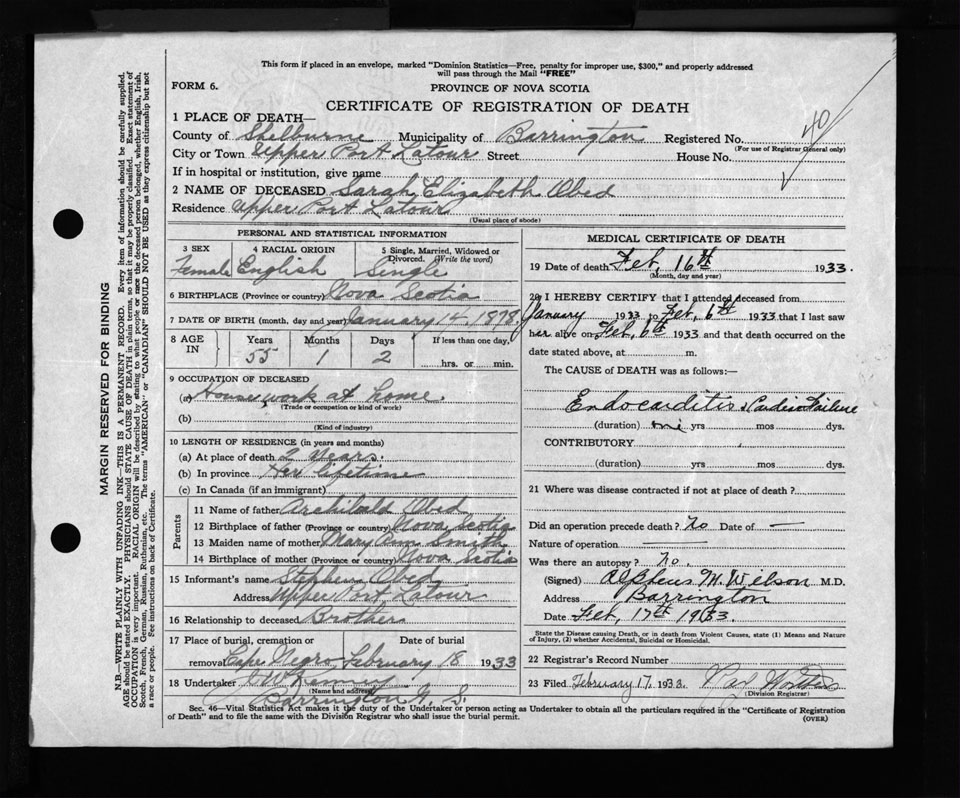 This form if placed in an envelope, marked "Dominion Statistics—Free, penalty for improper use, $300," and properly addressed
will pass through the Mail "FREE"
FORM 6.
PROVINCE OF NOVA SCOTIA
CERTIFICATE OF REGISTRATION OF DEATH
1 PLACE OF DEATH—
County of Shelburne Municipality of Barrington Registered No. 40
(For use of Registrar General only)
City or Town Upper Port Latour Street House No.
If in hospital or institution, give name
2 NAME OF DECEASED Sarah Elizabeth Obed
Residence Upper Port Latour
(Usual place of abode)
PERSONAL AND STATISTICAL INFORMATION
3 SEX 4 RACIAL ORIGIN 5 Single, Married, Widowed or
Divorced. (Write the word)
Female English Single
6 BIRTHPLACE (Province or country) Nova Scotia
7 DATE OF BIRTH (month, day and year) January 14, 1878,
8 AGE IN Years Months Days If less than one day,
55 1 2 hrs. or min.
9 OCCUPATION OF DECEASED
(a) House work at home.
(Trade or occupation or kind of work)
(b)
(Kind of industry)
10 LENGTH OF RESIDENCE (in years and months)
(a) At place of death 2 years.
(b) In province Her lifetime
(c) In Canada (if an immigrant)
Parents
11 Name of father Archibald Obed
12 Birthplace of father (Province or country) Nova Scotia
13 Maiden name of mother Mary Ann Smith
14 Birthplace of mother (Province or country) Nova Scotia
15 Informant's name Stephen Obed
Address Upper Port Latour
16 Relationship to deceased Brother
17 Place of burial, cremation or Date of burial
removal Cape Negro, February 18 1933
18 Undertaker
(Name and address)
Barrington N. S.
MEDICAL CERTIFICATE OF DEATH
19 Date of death Feb, 16th 1933.
(Month, day and year)
20 I HEREBY CERTIFY that I attended deceased from
January 1933 to Feb, 6th 1933 that I last saw
her alive on Feb, 6th 1933 and that death occurred on the
date stated above, at m.
The CAUSE of DEATH was as follows:—
Endocarditis Cardiac Failure
(duration) yrs mos dys.
CONTRIBUTORY
(duration) yrs mos dys.
21 Where was disease contracted if not at place of death?
Did an operation precede death? No Date of —
Nature of operation —
Was there an autopsy? No.
(Signed) Alpheus M. Wilson M.D.
Address Barrington
Date Feb, 17th 1933.
State the Disease causing Death, or in death from Violent Causes, state (1) Means and Nature
of Injury, (2) whether Accidental, Suicidal or Homicidal.
22 Registrar's Record Number
23 Filed February 17, 1933.
(Division Registrar)
Sec. 46—Vital Statistics Act makes it the duty of the Undertaker or person acting as Undertaker to obtain all the particulars required in the "Certificate of Registration
of Death" and to file the same with the Division Registrar who shall issue the burial permit. (OVER)
MARGIN RESERVED FOR BINDING
N.B.—WRITE PLAINLY WITH UNFADING INK—THIS IS A PERMANENT RECORD. Every item of information should be carefully supplied.
AGE should be stated EXACTLY. PHYSICIANS should STATE CAUSE OF DEATH in plain terms, so that it may be properly classified. Exact statement of
OCCUPATION is very important. RACIAL ORIGIN will be described by stating to what people or race the deceased person belonged, whether English, Irish,
Scotch, French, German, Russian, Ruthenian, etc. The terms "AMERICAN" or "CANADIAN" SHOULD NOT BE USED as they express citizenship but not
a race or people. See instructions on back of Certificate.